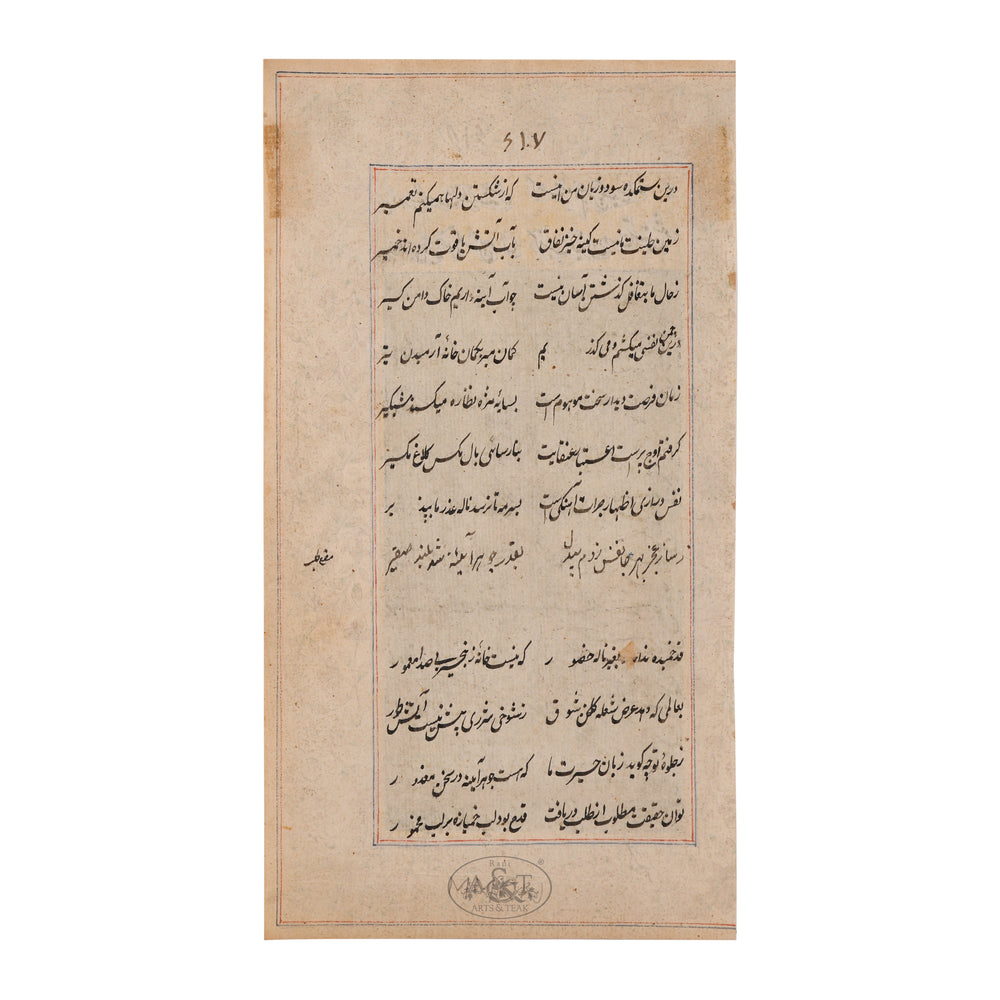 ۶۱۰۷
درین ستمکده سود و زیان من اینست که از شکستن دلها همیکنم تعمیر
زمین طینت ما نیست کینه خیز نفاق بآب آتش یاقوت کرده اند خمیر
ز حال ما بتغافل گذشتن آسان نیست چو آب آینه داریم خاک دامن گیر
درین چمن نفسی میکشم و می گذریم کمان مبر بکمان خانه آرمیدن تیر
زمان فرصت دیدار سخت موهوم است بسایه مژه نظاره میکند شبگیر
گرفتم اوج پرست اعتبار عنقایت بنارسائی بال مگس کلاغ مگیر
نفس درازی اظهار جرات آهنگی است بسرمه تا نرسد ناله عذر ما بپذیر
ز ساز عجز بهر جا نفس زدم بیدل بقدر جوهر آینه شد بلند صفیر
قد خمیده ندارد بغیر ناله حضور که نیست خانه زنجیر بی صدا معمور
بعالمی که دهد عرض شعله کلفن شوق ز شوخی شرری بیش نیست آتش طور
ز جلوه تو چه گوید زبان حیرت ما که است جوهر آینه در سخن معذور
توان حقیقت مطلوب از طلب دریافت قدح بود لب خمیازه بر لب مخمور
Rani
ARTS & TEAK